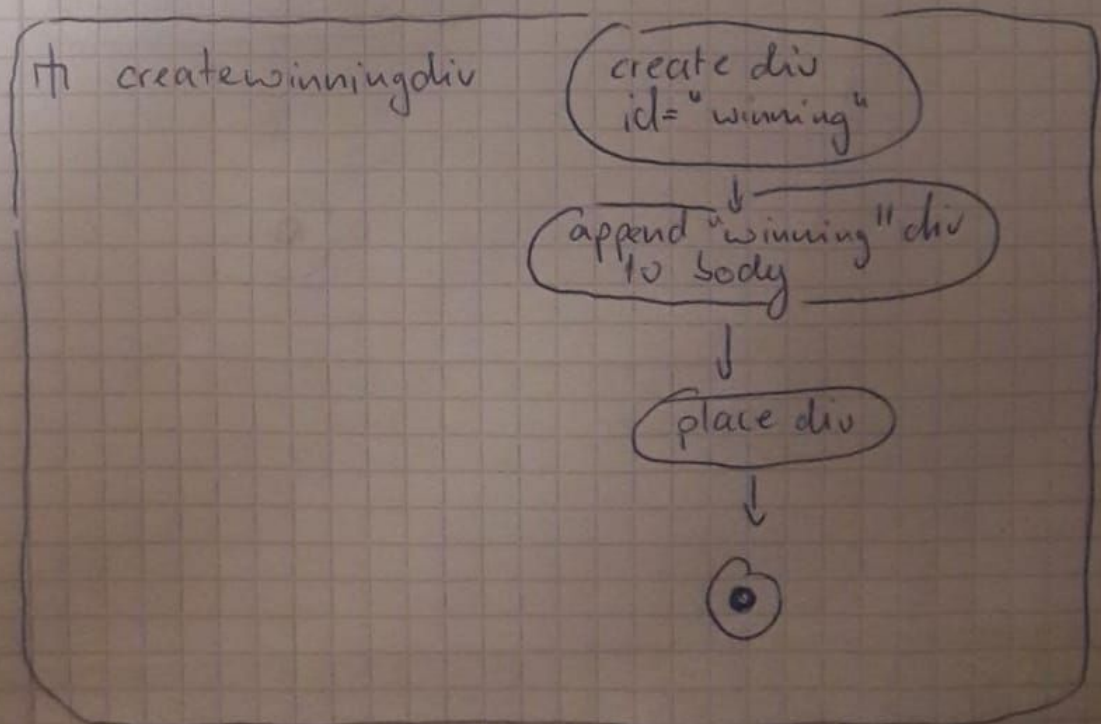 createwinningdiv
create div
id="winning"
append "winning" div
to body
place div